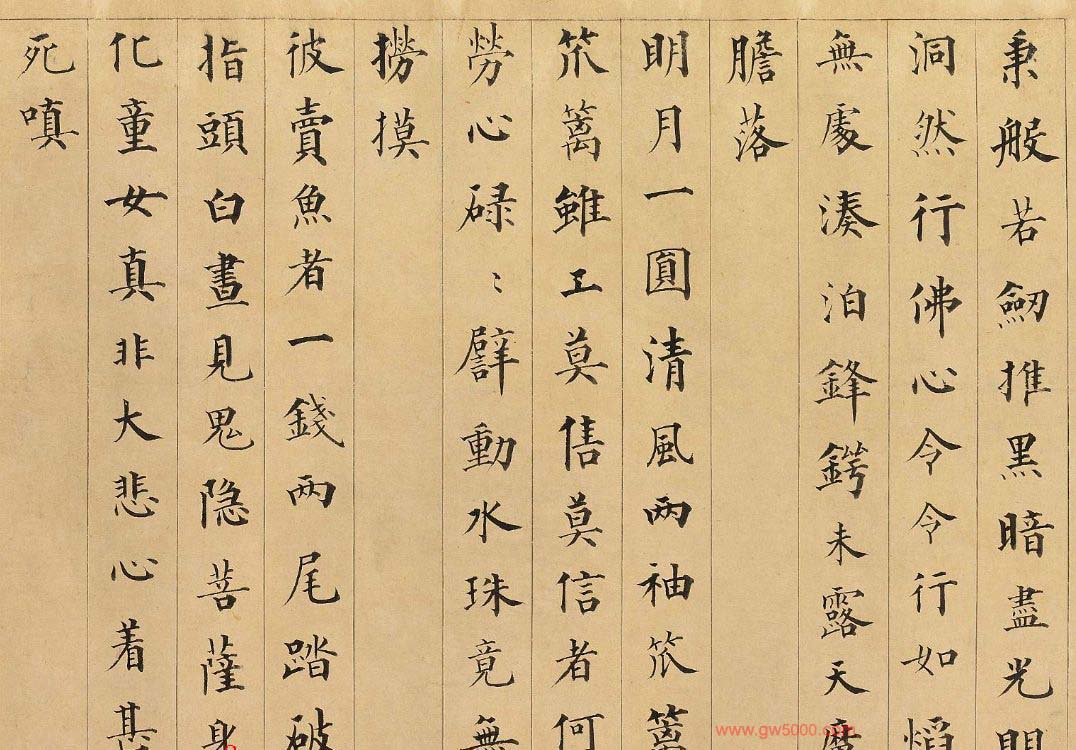 秉般若劒推黑暗盡光明
洞然行佛心令令行如焰
無處湊泊鋒鍔未露天魔
膽落
明月一圓清風兩袖笊篱
笊篱雖工莫售莫信者何
勞心碌〻劈動水珠竟無
撈摸
彼賣魚者一錢兩尾踏破
指頭白晝見鬼隐菩薩身
化童女真非大悲心着甚
死嗔
www.gw5000.com